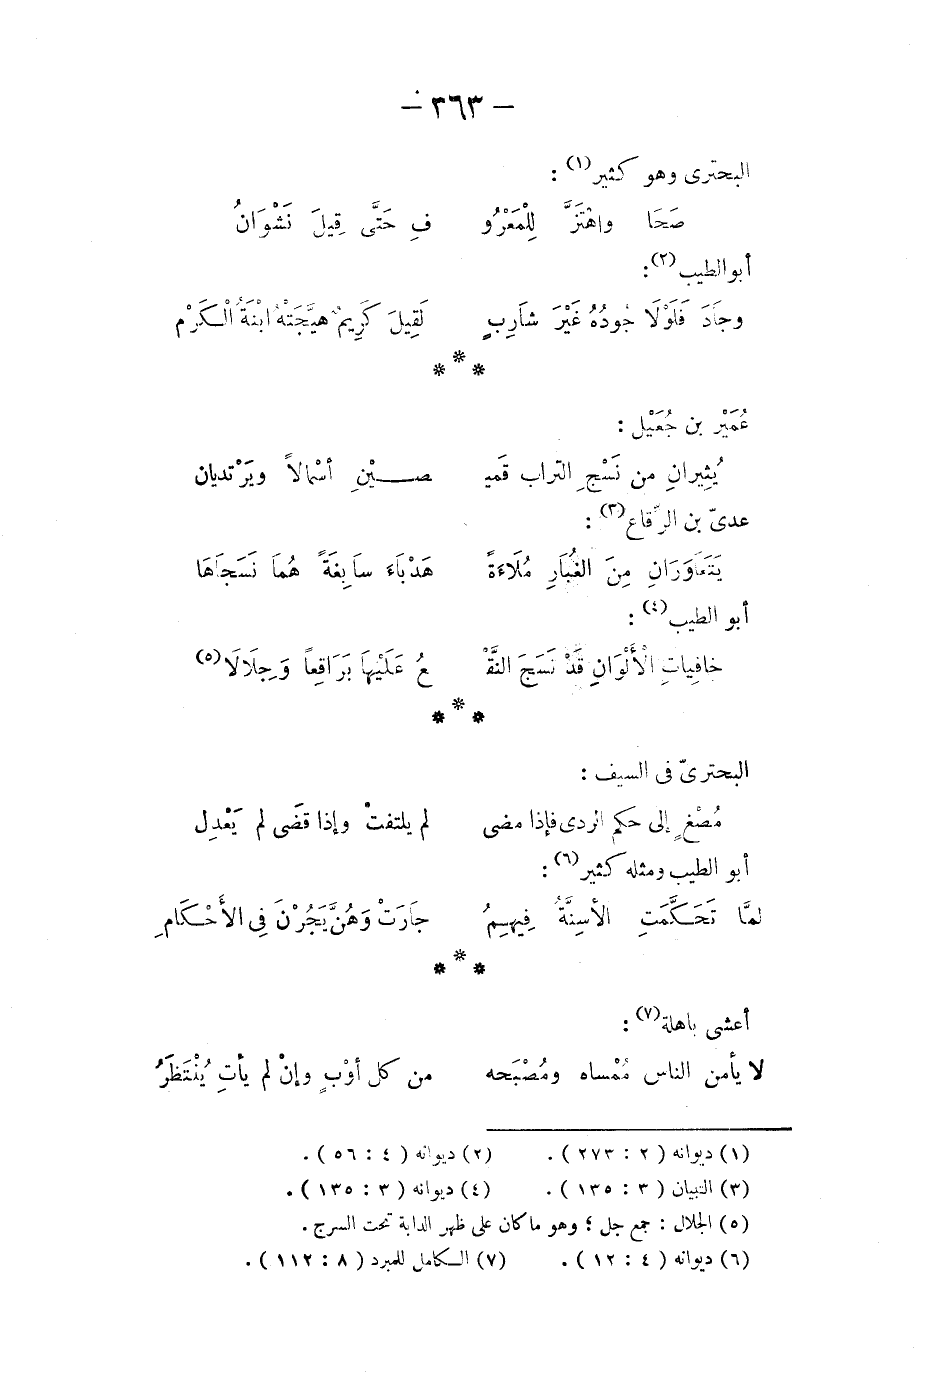 — ٣٦٣ —
البحترى وهو كثير(١) :
صَحَا واهْتَزَّ لِلْمَعْرُو فِ حَتَّى قِيلَ نَشْوَانُ
أبوالطيب(٢) :
وجَادَ فَلَوْلَا جُودُهُ غَيْرَ شَارِبٍ لَقِيلَ كَرِيمٌ هيَّجَتْهُ ابْنَةُ الْكَرْمِ
* * *
عُمَيْر بن جُعَيْل :
يُثِيرانِ من نَسْجِ التراب قَميـ صـــيْنِ أسْمالاً ويَرْتديان
عدىّ بن الرِّقاع(٣) :
يَتَعَاوَرَانِ مِنَ الغُبَارِ مُلَاءَةً هَدْبَاءَ سَابِغَةً هُمَا نَسَجَاهَا
أبو الطيب(٤) :
خافِياتِ الْأَلْوَانِ قَدْ نَسَجَ النَّقْـ عُ عَلَيْهَا بَرَاقِعاً وَجِلَالَا(٥)
* * *
البحترىّ فى السيف :
مُصْغٍ إلى حكم الردى فإذا مضى لم يلتفتْ وإذا قضَى لم يَعْدِل
أبو الطيب ومثله كثير(٦) :
لمَّا تَحَكَّمَتِ الأسِنَّةُ فِيهِمُ جَارَتْ وَهُنَّ يَجُرْنَ فِى الأَحْكَامِ
* * *
أعشى باهلة(٧) :
لا يأمن الناس مُمْساه ومُصْبَحه من كل أوْبٍ وإنْ لم يأتِ يُنْتَظَرُ
(١) ديوانه ( ٢ : ٢٧٣ ) . (٢) ديوانه ( ٤ : ٥٦ ) .
(٣) التبيان ( ٣ : ١٣٥ ) . (٤) ديوانه ( ٣ : ١٣٥ ) .
(٥) الجلال : جمع جل ؛ وهو ما كان على ظهر الدابة تحت السرج .
(٦) ديوانه ( ٤ : ١٢ ) . (٧) الكامل للمبرد ( ٨ : ١١٢ ) .